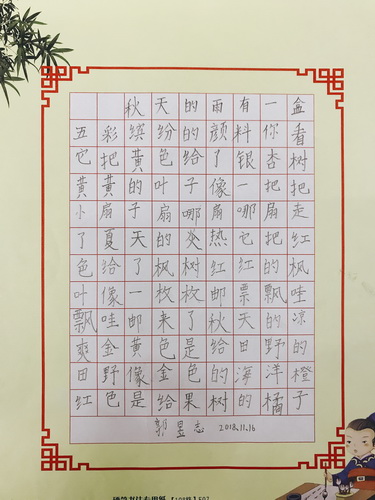 秋天的雨有一盒
五彩缤纷的颜料你看
它把黄色给了银杏树
黄黄的叶子像一把把
小扇子扇哪扇哪扇走
了夏天的炎热它把红
色给了枫树红红的枫
叶像一枚枚邮票飘哇
飘哇邮来了秋天的凉
爽金黄色是给田野的
田野像金色的海洋橙
红色是给果树的橘子
郭昱志 2018.11.16